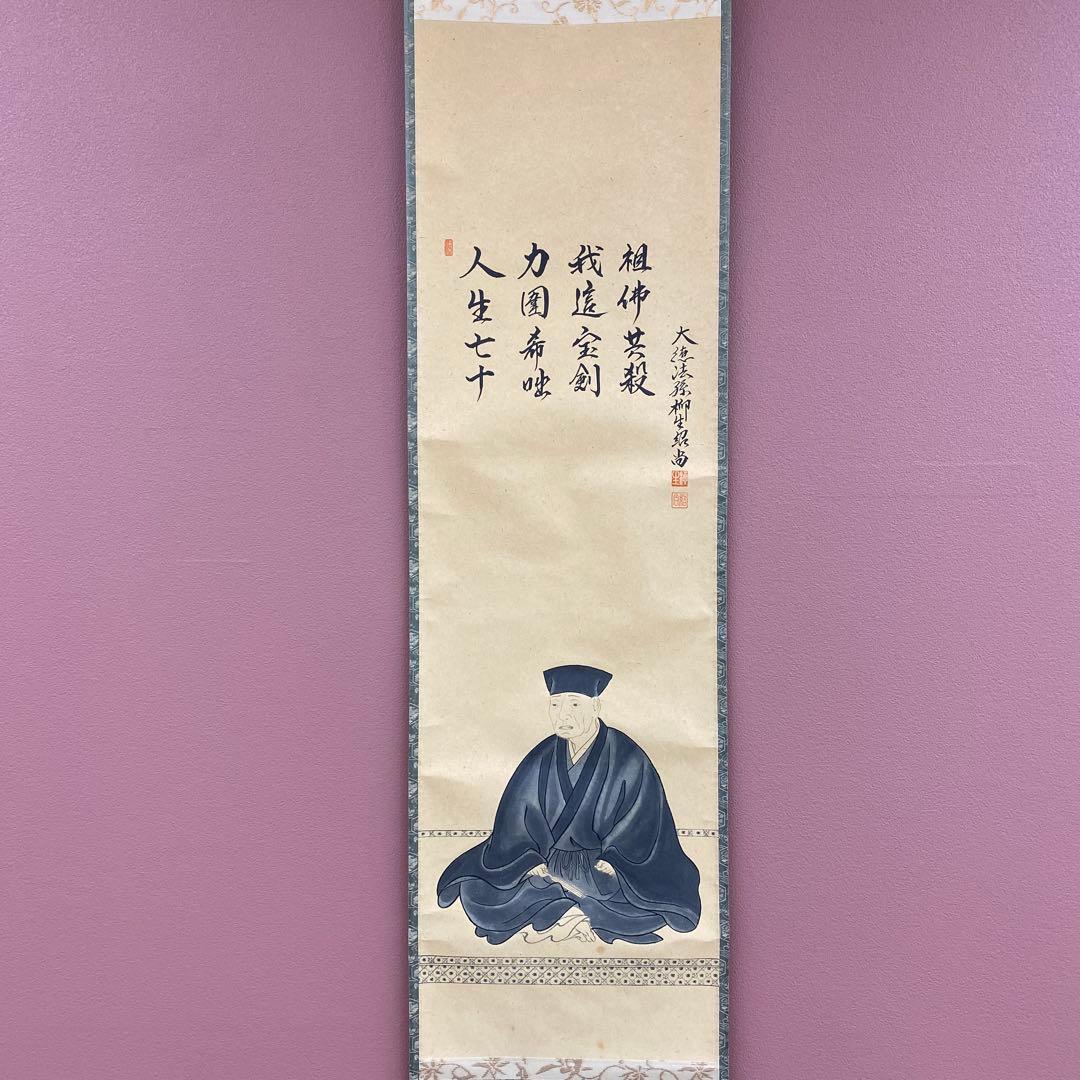 人生七十
力圍希咄
我這宝劍
祖佛共殺
大徳法孫柳生紹尚